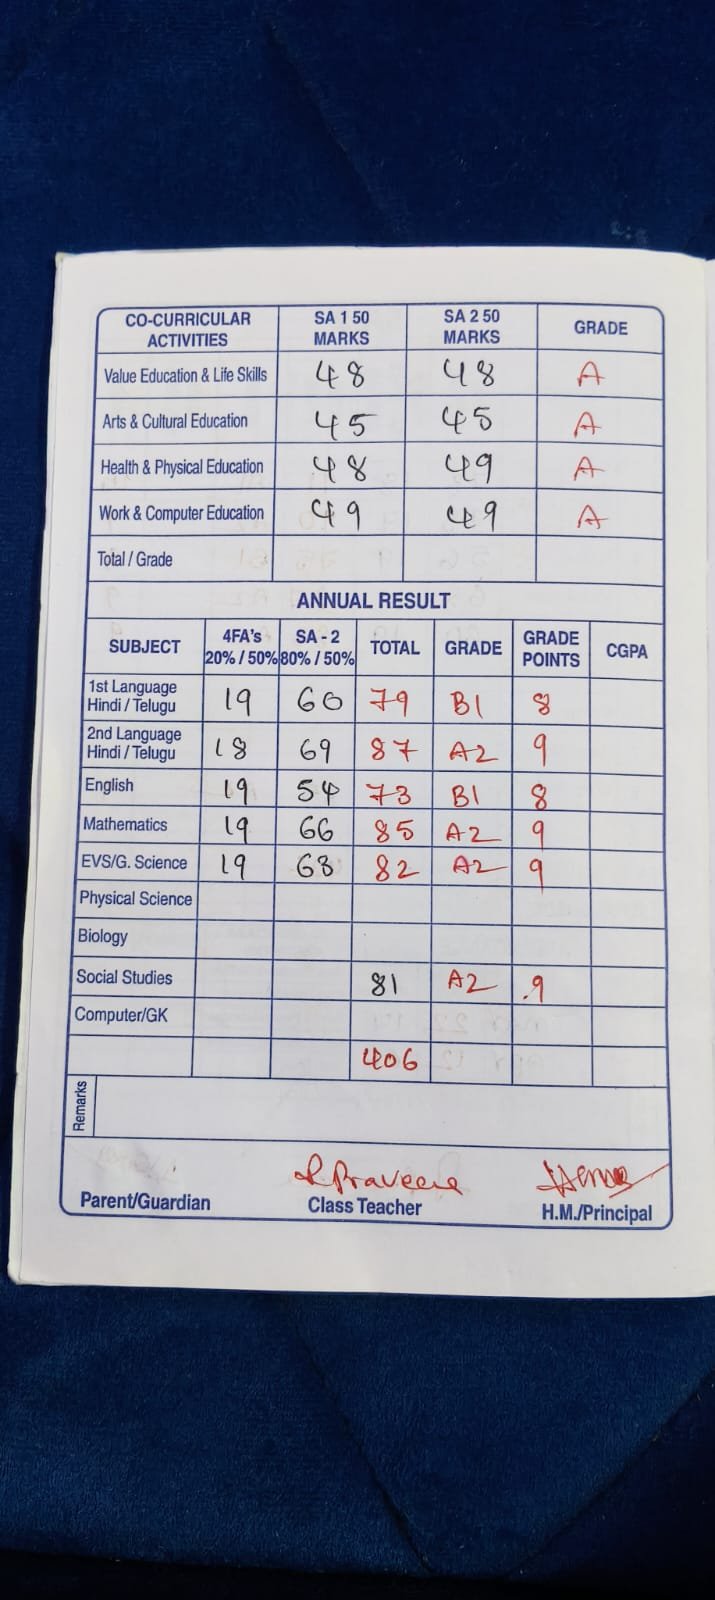 CO-CURRICULAR ACTIVITIES SA 1 50 MARKS SA 2 50 MARKS GRADE
Value Education & Life Skills 48 48 A
Arts & Cultural Education 45 45 A
Health & Physical Education 48 49 A
Work & Computer Education 49 49 A
Total / Grade
ANNUAL RESULT
SUBJECT 4FA's 20% / 50% SA - 2 80% / 50% TOTAL GRADE GRADE POINTS CGPA
1st Language Hindi / Telugu 19 60 79 B1 8
2nd Language Hindi / Telugu 18 69 87 A2 9
English 19 54 73 B1 8
Mathematics 19 66 85 A2 9
EVS/G. Science 19 63 82 A2 9
Physical Science
Biology
Social Studies 81 A2 .9
Computer/GK
406
Remarks
Praveena
Parent/Guardian Class Teacher H.M./Principal